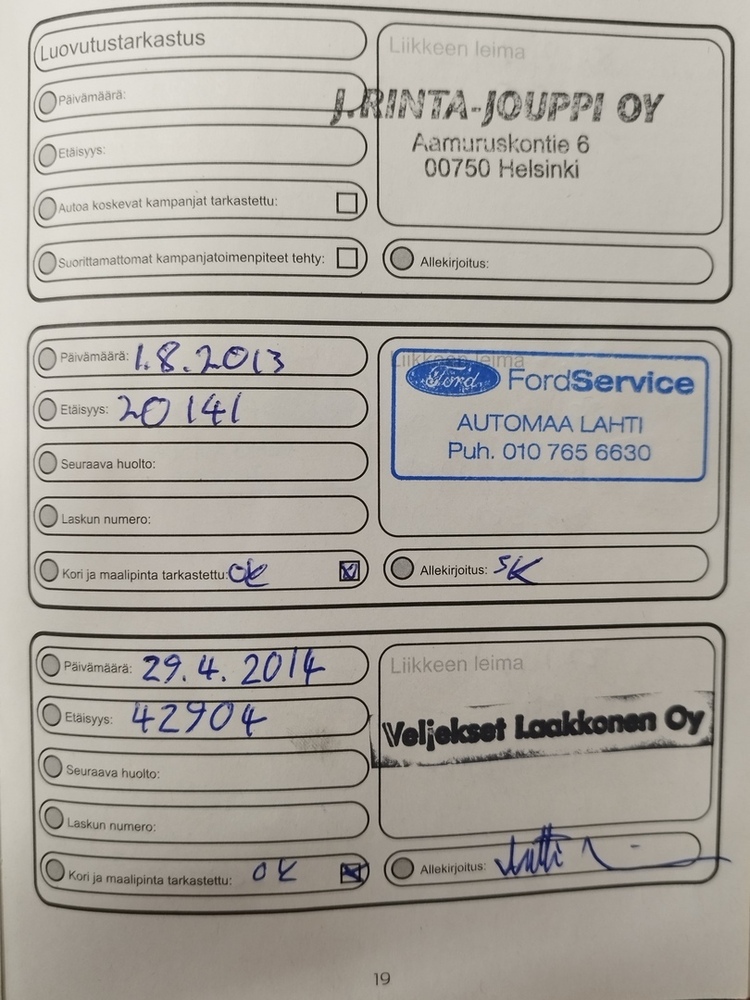 Luovutustarkastus
Liikkeen leima
Päivämäärä:
J. RINTA-JOUPPI OY
Aamuruskontie 6
00750 Helsinki
Etäisyys:
Autoa koskevat kampanjat tarkastettu:
Suorittamattomat kampanjatoimenpiteet tehty:
Allekirjoitus:
Päivämäärä: 1.8.2013
Etäisyys: 20141
Seuraava huolto:
Laskun numero:
Kori ja maalipinta tarkastettu: ok
Liikkeen leima
Ford FordService
AUTOMAA LAHTI
Puh. 010 765 6630
Allekirjoitus: SK
Päivämäärä: 29.4.2014
Etäisyys: 42904
Seuraava huolto:
Laskun numero:
Kori ja maalipinta tarkastettu: OK
Liikkeen leima
Veljekset Laakkonen Oy
Allekirjoitus:
19